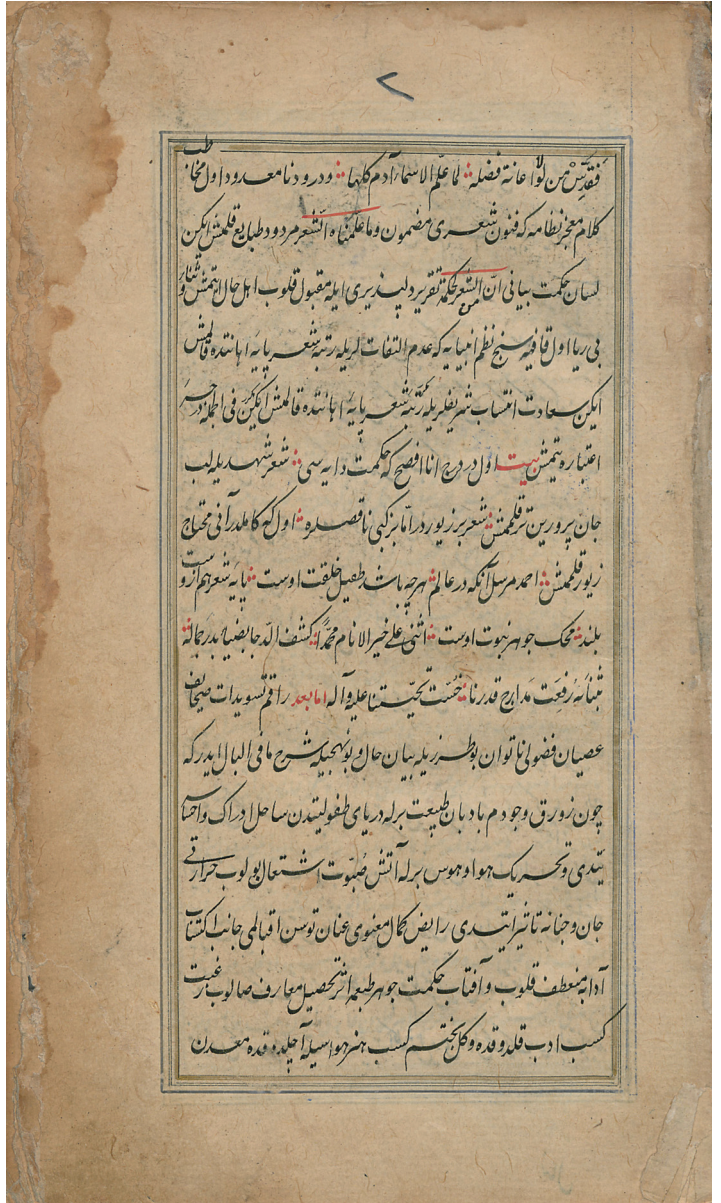 ٢
فقدس من لولا اعانة فضله لما علم الاسماء آدم كلها ودرود نامعدود اول مخاطب
كلام معجز نظامه كه فنون شعرى مضمون وما علمناه الشعر مردود طبايع قلمش ايكن
لسان حكمت بيانى ان من الشعر لحكمة تقرير دلپذيرى ايله مقبول قلوب اهل حال ايتمش و ثناى
بى ريا اول قافيه سنج نظم انبيايه كه عدم التفات لريله رتبۀ شعر پايۀ اهانتده قالمش
ايكن سعادت انتساب شريفلريله رتبۀ شعر پايۀ اهانتده قالمش ايكن فى الجمله درجۀ
اعتباره يتمش بيت اول در درج انا افصح كه حكمت دايه سى شعر شهديله لب
جان پرورين تر قلممش شعر بر زيور در اما بزكبى ناقصلره اول كه كاملدر آنى محتاج
زيور قلممش احمد مرسل آنكه در عالم هرچه باشد طفيل خلقت اوست پايۀ شعر هم ازوست
بلند محك جوهر نبوت اوست اثنى على خير الانام محمدا كشف الدجا بضياء بدر جماله
بثنائه رفعت مدارج قدرنا خست تحيتنا عليه وآله اما بعد راقم تسويدات صحايف
عصيان فضولى ناتوان بو طرزيله بيان حال و بو نهجيله شرح ما فى البال ايدر كه
چون زورق وجودم بادبان طبيعت برله درياى طفوليتدن ساحل ادراك واحساسه
يتدى و تحريك هوا وهوس برله آتش صبوت اشتعال بولوب حرارتى
جان و جنانه تاثير ايتدى رايض كمال معنوى عنان توسن اقبالمى جانب اكتساب
آدابه منعطف قلوب و آفتاب حكمت جوهر طبعمه اثر تحصيل معارف صالوب رغبت
كسب ادب قلدوقده و كل بختم كسب هنر هواسيله آچلدوقده معدن